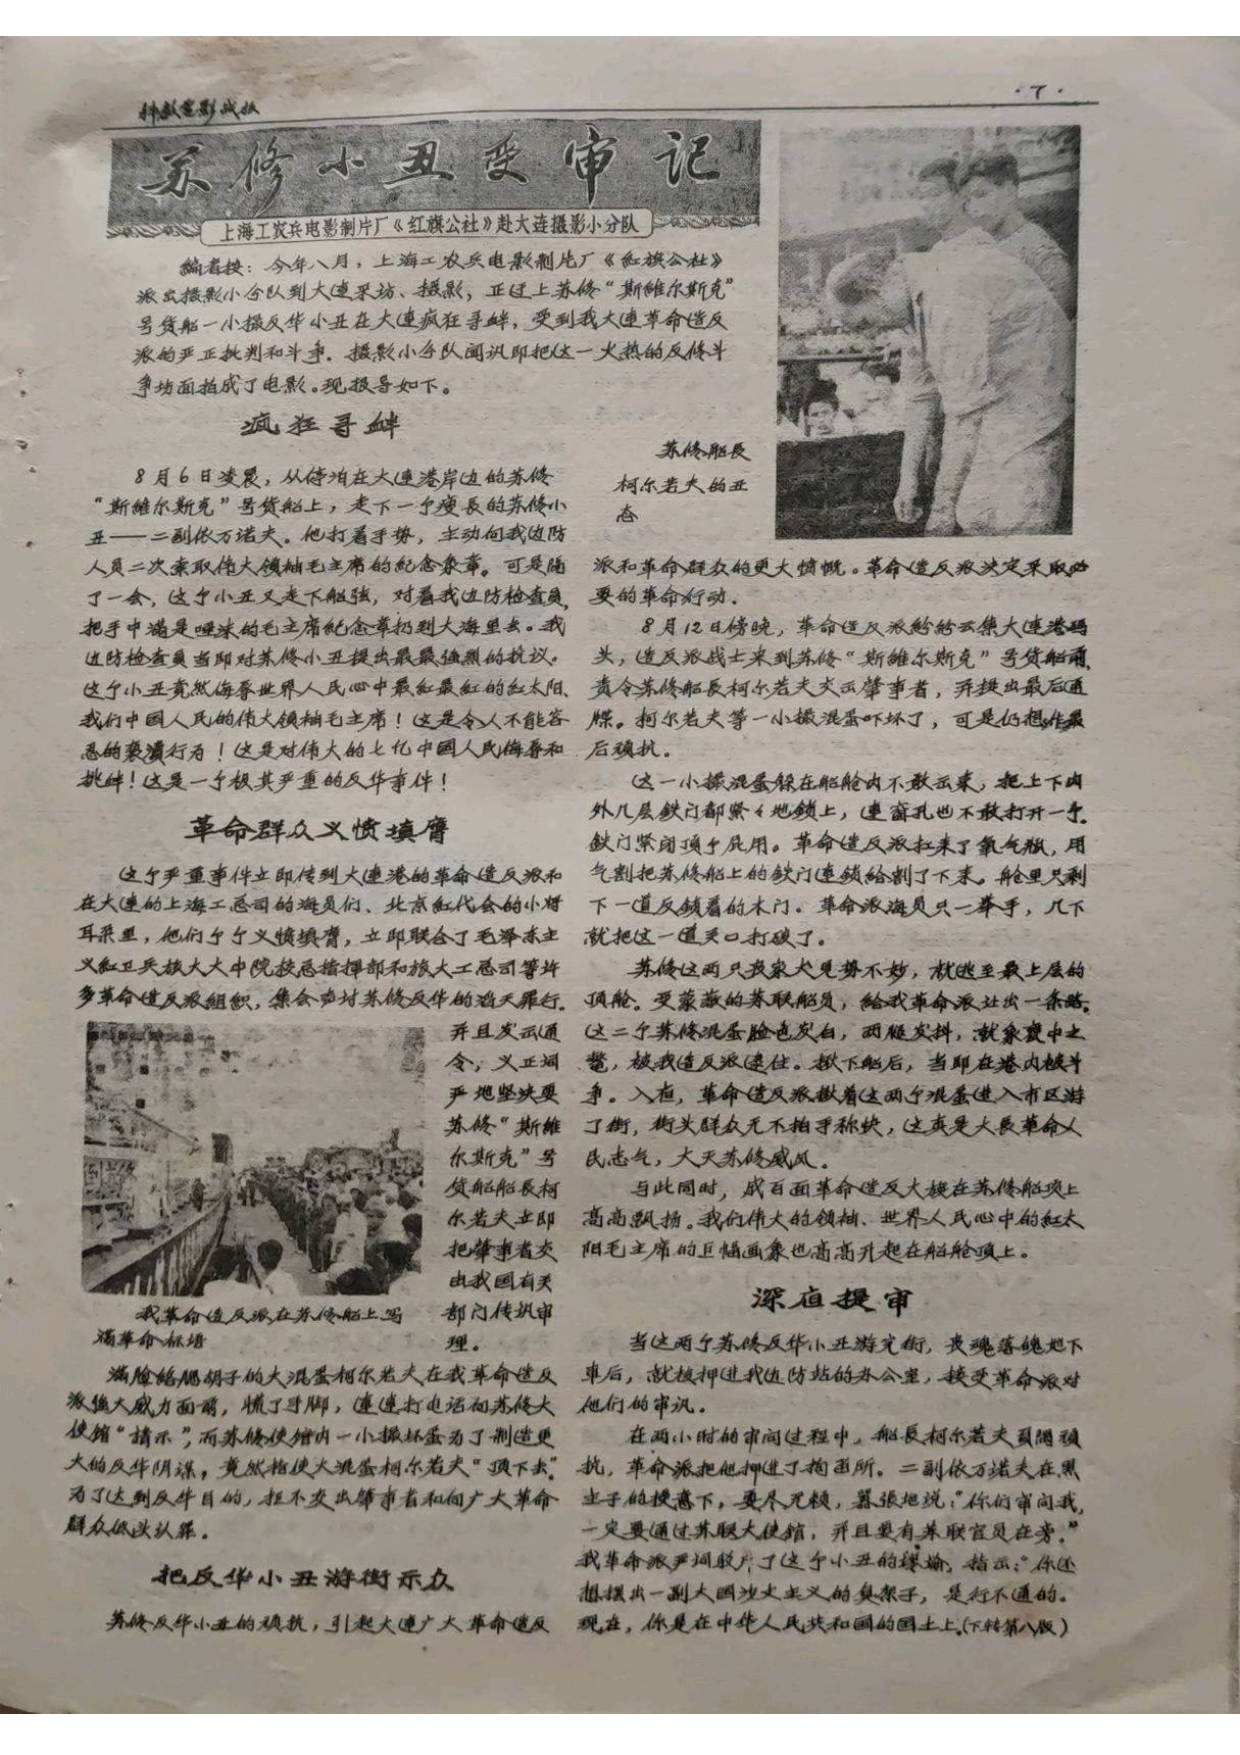 科教电影战报
·7·
苏修小丑受审记
上海工农兵电影制片厂《红旗公社》赴大连摄影小分队
编者按：今年八月，上海工农兵电影制片厂《红旗公社》
派出摄影小分队到大连采访、摄影，正迂上苏修“斯維尔斯克”
号货船一小撮反华小丑在大連疯狂寻衅，受到我大連革命造反
派的严正批判和斗争。摄影小分队闻讯即把这一火热的反修斗
争场面拍成了电影。现报导如下。
疯狂寻衅
8月6日凌晨，从停泊在大連港岸边的苏修
“斯維尔斯克”号货船上，走下一个瘦長的苏修小
丑——二副依万诺夫。他打着手势，主动向我边防
人员二次索取伟大领袖毛主席的纪念象章。可是隔
了一会，这个小丑又走下船弦，对着我边防检查员，
把手中满是唾沫的毛主席纪念章扔到大海里去。我
边防检查員当即对苏修小丑提出最最强烈的抗议。
这个小丑竟然侮辱世界人民心中最紅最紅的紅太阳、
我们中國人民的伟大领袖毛主席！这是令人不能容
忍的亵瀆行为！这是对伟大的七亿中國人民侮辱和
挑衅！这是一个极其严重的反华事件！
革命群众义愤填膺
这个严重事件立即传到大連港的革命造反派和
在大連的上海工总司的海员们、北京紅代会的小将
耳朵里，他们个个义愤填膺，立即联合了毛泽东主
义紅卫兵旅大大中院校总指揮部和旅大工总司等许
多革命造反派组织，集会声讨苏修反华的滔天罪行。
并且发云通
令，义正词
严地坚决要
苏修“斯維
尔斯克”号
货船船長柯
尔若夫立即
把肇事者交
由我國有关
部门传讯审
理。
我革命造反派在苏修船上写
满革命标语
满脸络腮胡子的大混蛋柯尔若夫在我革命造反
派强大威力面前，慌了手脚，連連打电话向苏修大
使館“請示”，而苏修使館内一小撮坏蛋为了制造更
大的反华阴谋，竟然指使大混蛋柯尔若夫“頂下去”。
为了达到反华目的，拒不交出肇事者和向广大革命
群众低头认罪。
把反华小丑游街示众
苏修反华小丑的頑抗，引起大連广大革命造反
苏修船長
柯尔若夫的丑
态
派和革命群众的更大愤慨。革命造反派决定采取必
要的革命行动。
8月12日傍晚，革命造反派紛紛云集大連港码
头，造反派战士来到苏修“斯維尔斯克”号货船前，
责令苏修船長柯尔若夫交云肇事者，并提出最后通
牒。柯尔若夫等一小撮混蛋吓坏了，可是仍想作最
后頑抗。
这一小撮混蛋躲在船舱内不敢云来，把上下内
外几层鉄门都紧々地鎖上，連窗孔也不敢打开一个。
鉄门紧闭頂个屁用。革命造反派扛来了氧气瓶，用
气割把苏修船上的鉄门連鎖給割了下来。舱里只剩
下一道反鎖着的木门。革命派海员只一举手，几下
就把这一道关口打破了。
苏修这两只丧家犬見势不妙，就逃至最上层的
頂舱。受蒙蔽的苏联船员，給我革命派让出一条路。
这二个苏修混蛋脸色发白，两腿发抖，就象甕中之
鳖，被我造反派逮住。揪下船后，当即在港内被斗
争。入夜，革命造反派揪着这两个混蛋进入市区游
了街，街头群众无不拍手称快，这真是大長革命人
民志气，大灭苏修威风。
与此同时，成百面革命造反大旗在苏修船頂上
高高飘扬。我们伟大的领袖、世界人民心中的紅太
阳毛主席的巨幅画象也高高升起在船舱頂上。
深夜提审
当这两个苏修反华小丑游完街，丧魂落魄地下
車后，就被押进我边防站的办公室，接受革命派对
他们的审讯。
在两小时的审问过程中，船長柯尔若夫頑固頑
抗，革命派把他押进了拘留所。二副依万诺夫在黑
主子的授意下，耍尽无赖，囂张地说：“你们审问我，
一定要通过苏联大使館，并且要有苏联官员在旁。”
我革命派严词驳斥了这个小丑的谬论，指云：“你还
想摆出一副大國沙文主义的臭架子，是行不通的。
现在，你是在中华人民共和國的國土上。(下转第八版)